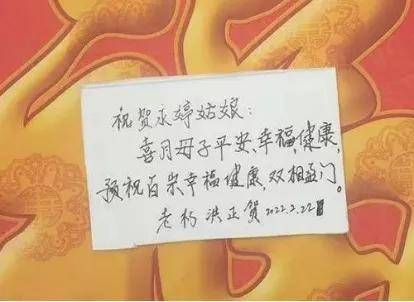 祝贺永婷姑娘：
喜月母子平安、幸福、健康，
预祝百岁幸福健康，双相盈门。
老朽 洪正贺 2022.2.22